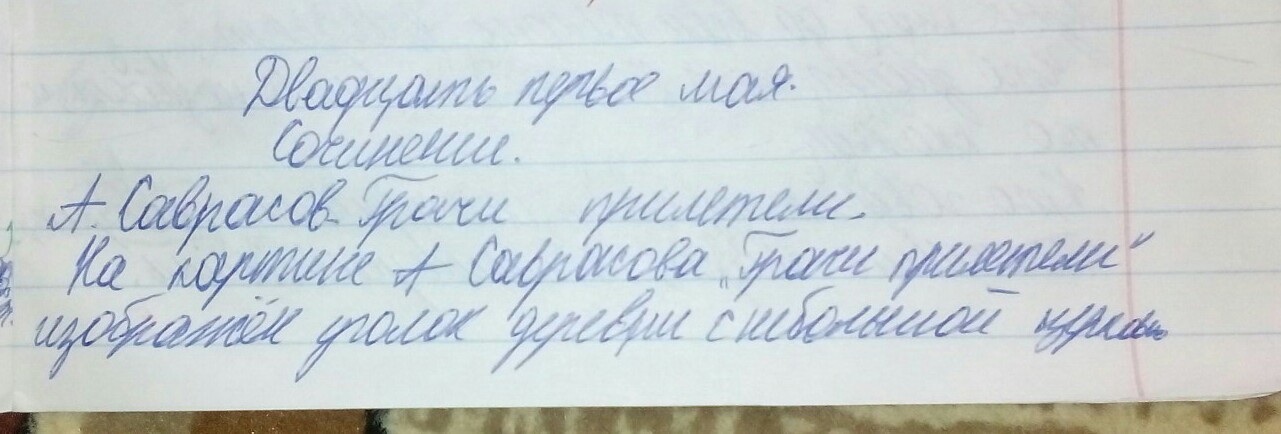 Двадцать первое мая.
Сочинении.
А. Саврасов Грачи прилетели.
На картине А Саврасова „Грачи прилетели"
изображён уголок деревни с небольшой церковью